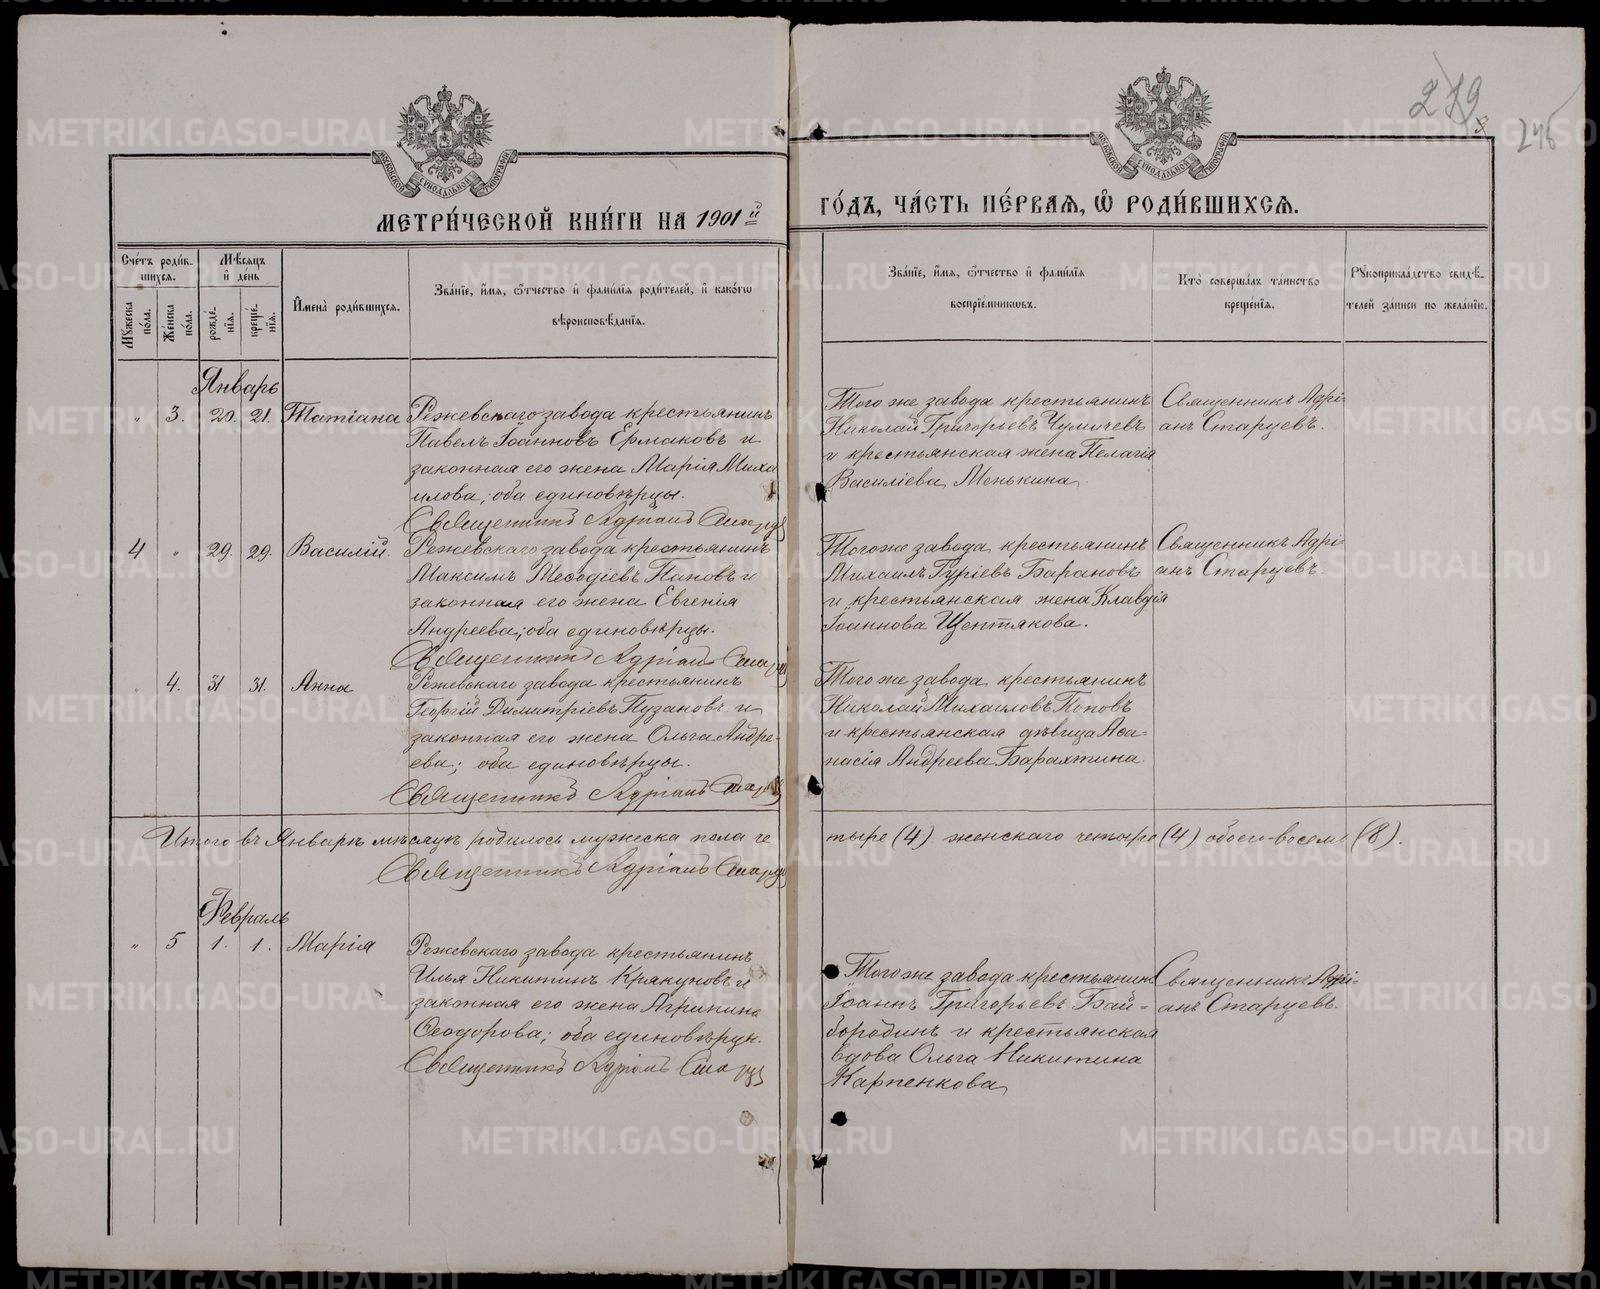 279
246
МОСКОВСКОЙ СѴНОДАЛЬНОЙ ТИПОГРАФІИ
МОСКОВСКОЙ СѴНОДАЛЬНОЙ ТИПОГРАФІИ
МЕТРИ́ЧЕСКОЙ КНИ́ГИ НА 1901й
ГО́ДЪ, ЧА́СТЬ ПЕ́РВАѦ, Ѡ҆ РОДИ́ВШИХСѦ.
Сче́тъ роди́в-
шихсѧ.
Мꙋ́жеска
по́ла.
Же́нска
по́ла.
Мѣ́сѧцъ
и҆ де́нь
рожде́-
нїѧ.
креще́-
нїѧ.
И҆мена̀ роди́вшихсѧ.
Зва́нїе, и҆́мѧ, ѻ҆́тчество и҆ фами́лїѧ роди́телей, и҆ како́гѡ
вѣроисповѣ́данїѧ.
Зва́нїе, и҆́мѧ, ѻ҆́тчество и҆ фами́лїѧ
воспрїе́мникѡвъ.
Кто̀ соверша́лъ та́инство
креще́нїѧ.
Рꙋкоприкла́дство свидѣ́-
телей за́писи по жела́нїю.
Январь
" 3. 20. 21. Татіана
Режевскаго завода крестьянинъ
Павелъ Іоанновъ Ермаковъ и
законная его жена Марія Миха
илова; оба единовѣрцы.
Священникъ Адріанъ Старц
Того же завода крестьянинъ
Николай Григорьевъ Чумичевъ
и крестьянская жена Пелагія
Василіева Менькина
Священникъ Адрі-
анъ Старцевъ.
4 " 29. 29. Василій
Режевскаго завода крестьянинъ
Максимъ Меѳодіевъ Пановъ и
законная его жена Евгенія
Андреева; оба единовѣрцы.
Священникъ Адріанъ Старц
Того же завода крестьянинъ
Михаилъ Гуріевъ Барановъ
и крестьянская жена Клавдія
Іоаннова Щептякова.
Священникъ Адрі-
анъ Старцевъ.
" 4. 31 31. Анна
Режевскаго завода крестьянинъ
Георгій Димитріевъ Пузановъ и
законная его жена Ольга Андре-
ева; оба единовѣрцы.
Священникъ Адріанъ Старц
Того же завода крестьянинъ
Николай Михаиловъ Поповъ
и крестьянская дѣвица Аѳа-
насія Андреева Барахтина.
Итого въ Январѣ мѣсяцѣ родилось мужеска пола че
тыре (4) женскаго четыре (4) обоего-восемь (8).
Священникъ Адріанъ Старц
Февраль
" 5 1. 1. Марія
Режевскаго завода крестьянинъ
Илья Никитинъ Крякуновъ и
законная его жена Агрипина
Ѳеодорова; оба единовѣрцы.
Священникъ Адріанъ Старц
Того же завода крестьянинъ
Іоаннъ Григорьевъ Бай-
бородинъ и крестьянская
вдова Ольга Никитина
Карпенкова
Священникъ Адрі-
анъ Старцевъ.
METRIKI.GASO-URAL.RU